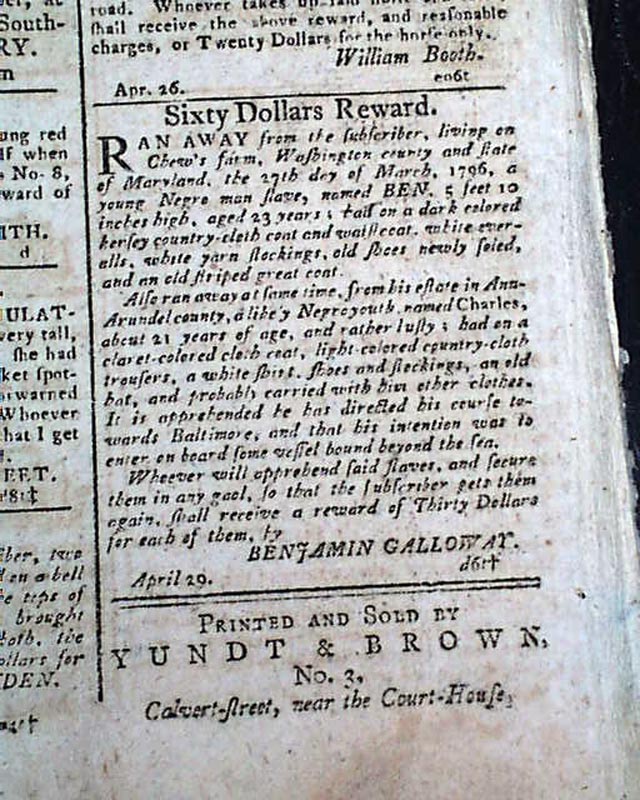 road. Whoever takes up
shall receive the above reward, and reasonable
charges, or Twenty Dollars for the horse only.
William Booth.
Apr. 26. eo6t
Sixty Dollars Reward.
RAN AWAY from the subscriber, living on
Chew's farm, Washington county and state
of Maryland, the 27th day of March, 1796, a
young Negro man slave, named BEN, 5 feet 10
inches high, aged 23 years; had on a dark colored
kersey country-cloth coat and waistcoat, white over-
alls, white yarn stockings, old shoes newly soled,
and an old striped great coat.
Also ran away at same time, from his estate in Ann-
Arundel county, a likely Negro youth, named Charles,
about 21 years of age, and rather lusty; had on a
claret-colored cloth coat, light-colored country-cloth
trousers, a white shirt, shoes and stockings, an old
hat, and probably carried with him other clothes.
It is apprehended he has directed his course to-
wards Baltimore, and that his intention was to
enter on board some vessel bound beyond the sea.
Whoever will apprehend said slaves, and secure
them in any gaol, so that the subscriber gets them
again, shall receive a reward of Thirty Dollars
for each of them, by
BENJAMIN GALLOWAY.
April 29. d6t†
PRINTED AND SOLD BY
YUNDT & BROWN,
No. 3,
Calvert-street, near the Court-House,
South-
RY.
m
ung red
lf when
s No. 8,
ward of
ITH.
d
ULAT-
very tall,
she had
ket spot-
orwarned
Whoever
hat I get
EET.
d8t‡
ber, two
d on a bell
e tips of
brought
oth, the
ollars for
DEN.